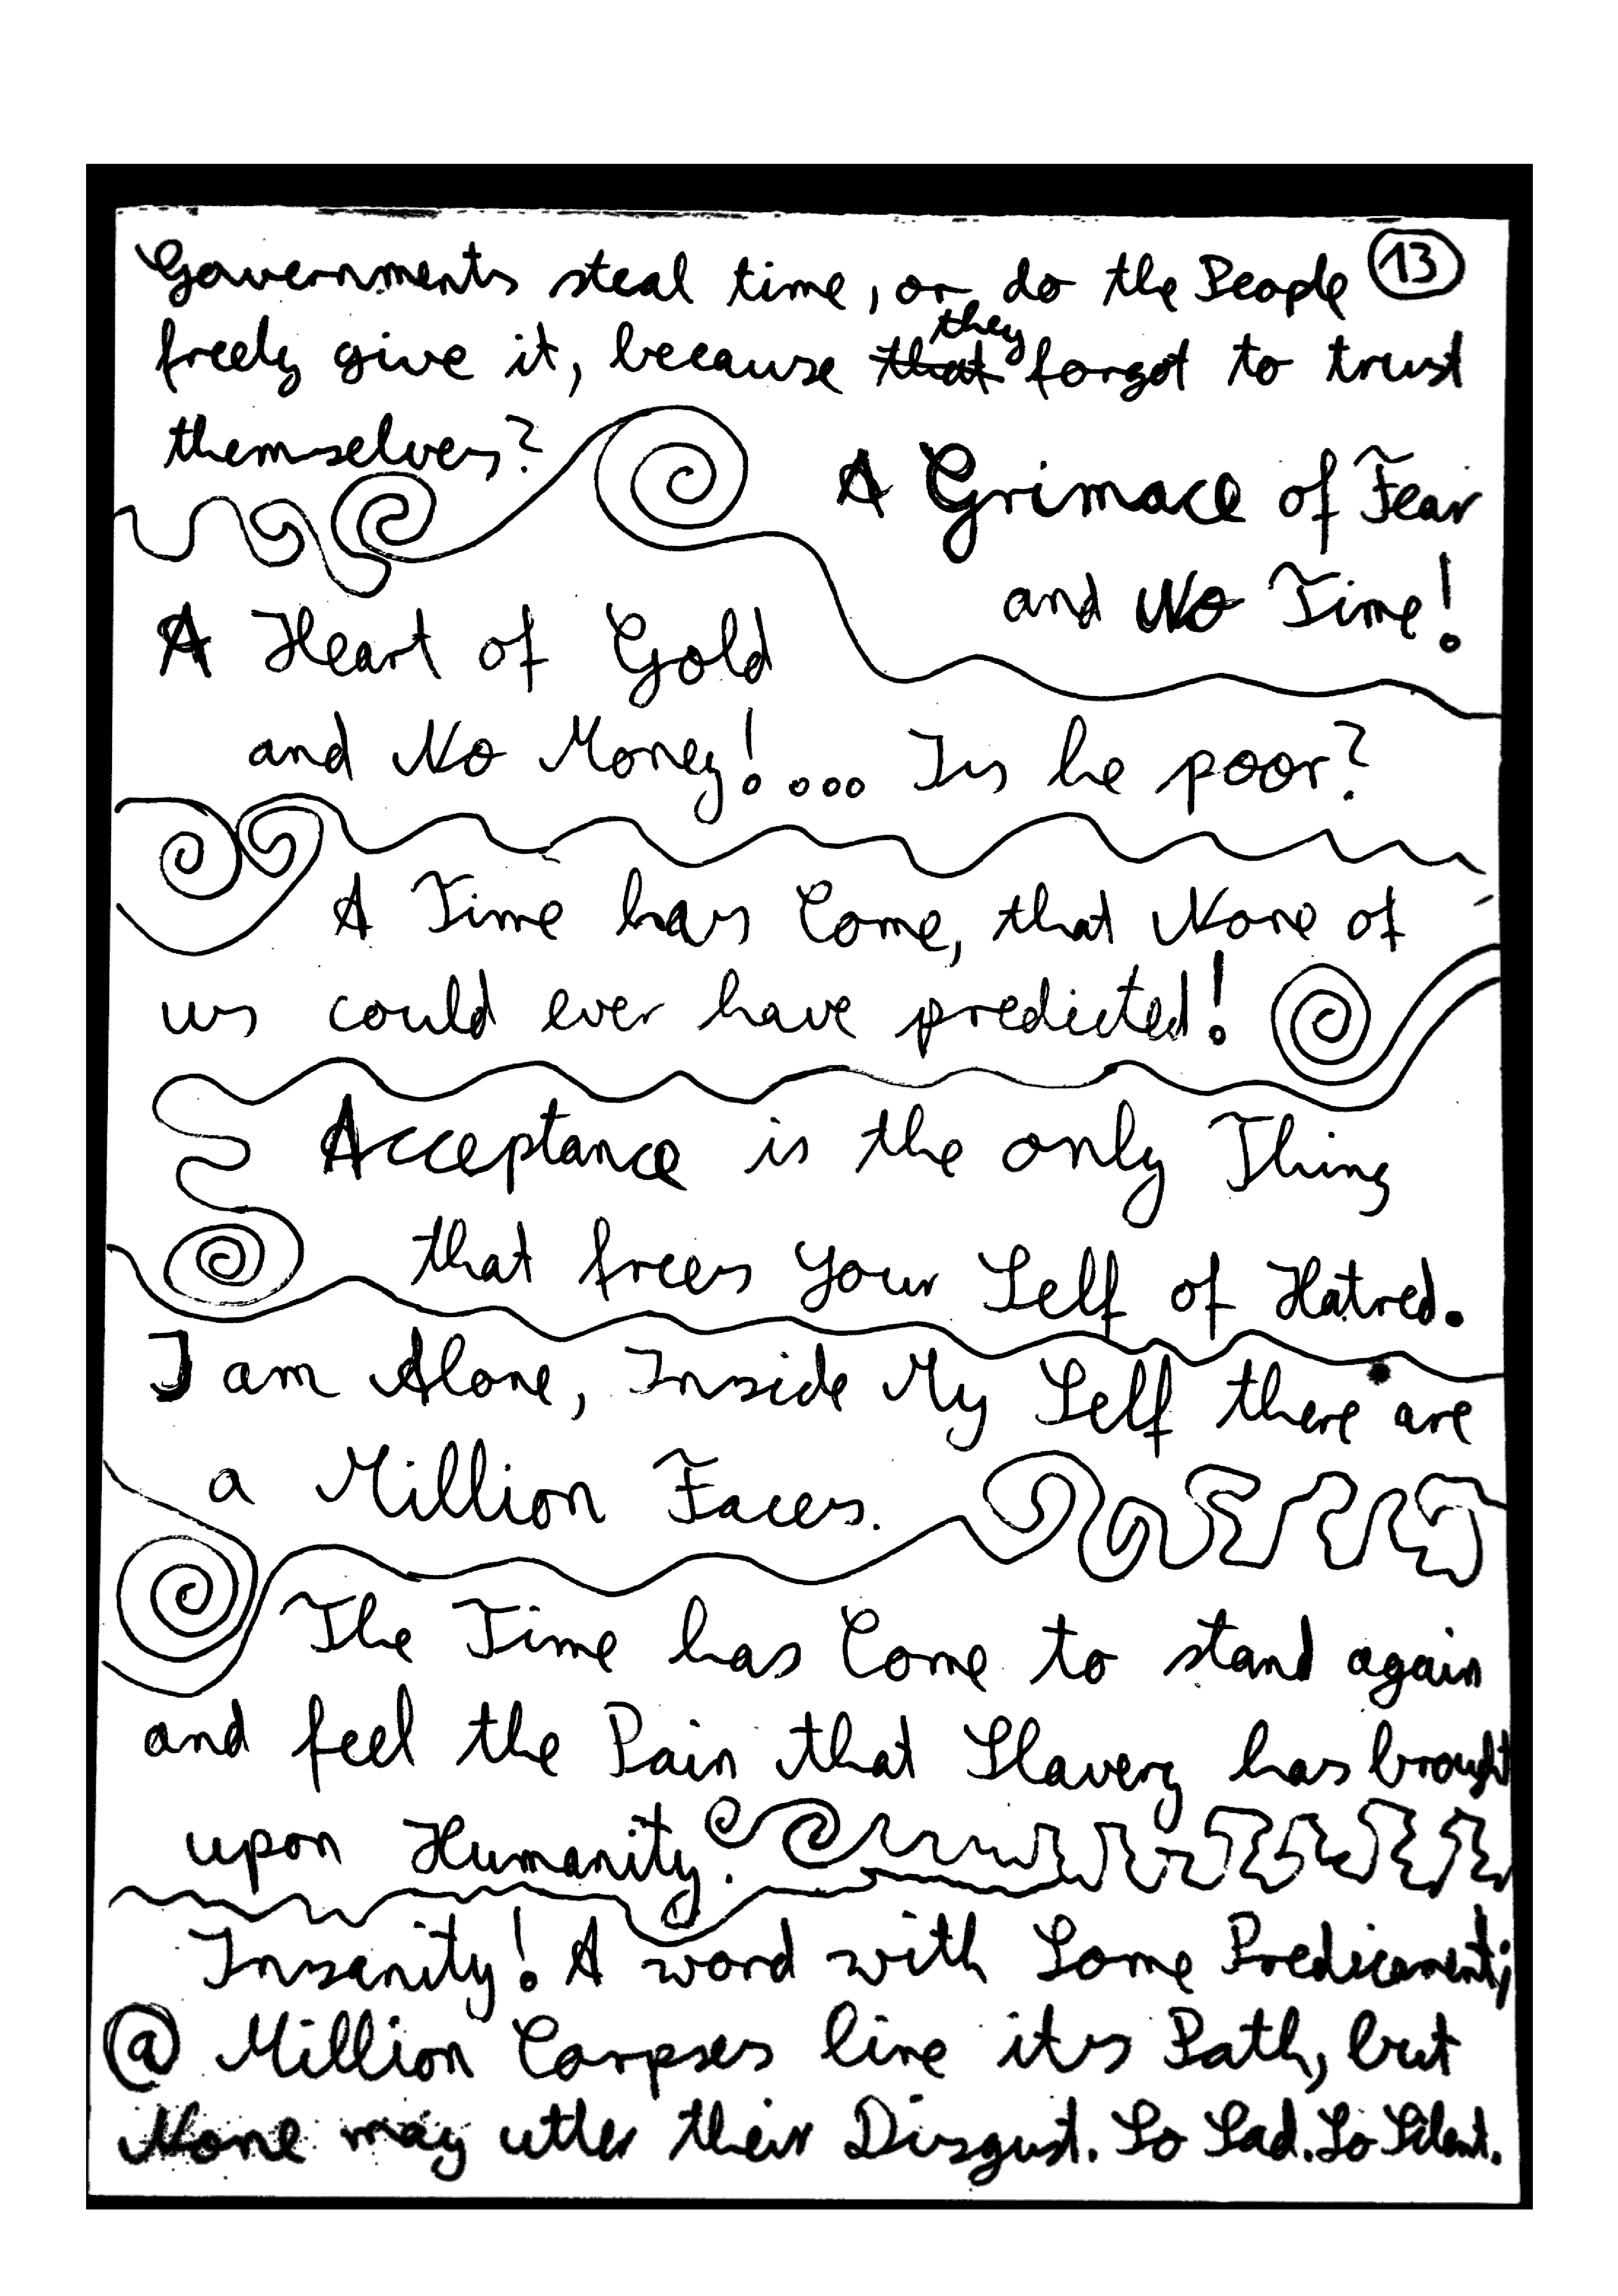 Governments steal time, or do the People 13
freely give it, because that they forgot to trust
themselves?
A Grimace of Fear
and No Time!
A Heart of Gold
and No Money!... Is he poor?
A Time has Come, that None of
us could ever have predicted!
Acceptance is the only Thing
that frees your Self of Hatred.
I am Alone, Inside My Self there are
a Million Faces.
The Time has Come to stand again
and feel the Pain that Slavery has brought
upon Humanity.
Insanity! A word with Some Predicament;
@ Million Corpses line its Path, but
None may utter their Disgust. So Sad. So Silent.